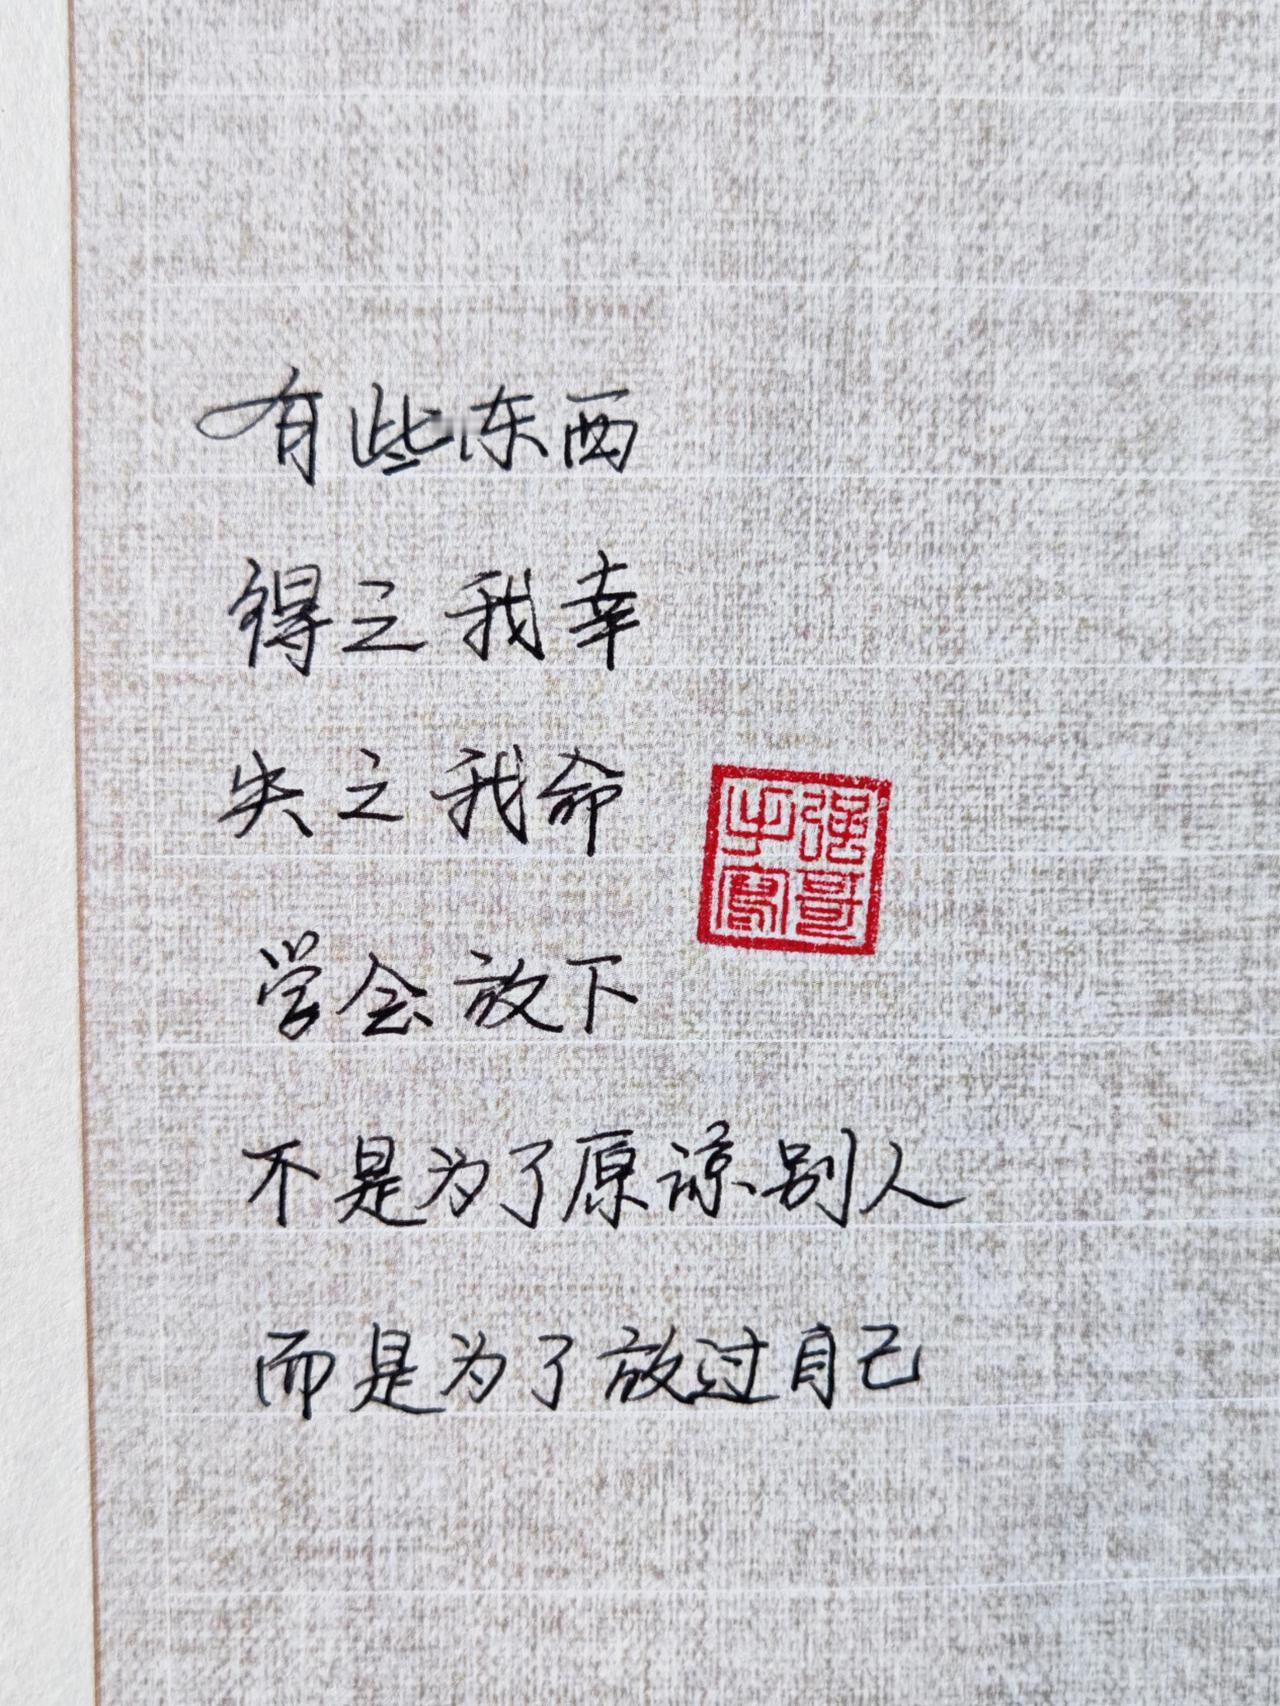 有些东西
得之我幸
失之我命
强哥手写
学会放下
不是为了原谅别人
而是为了放过自己